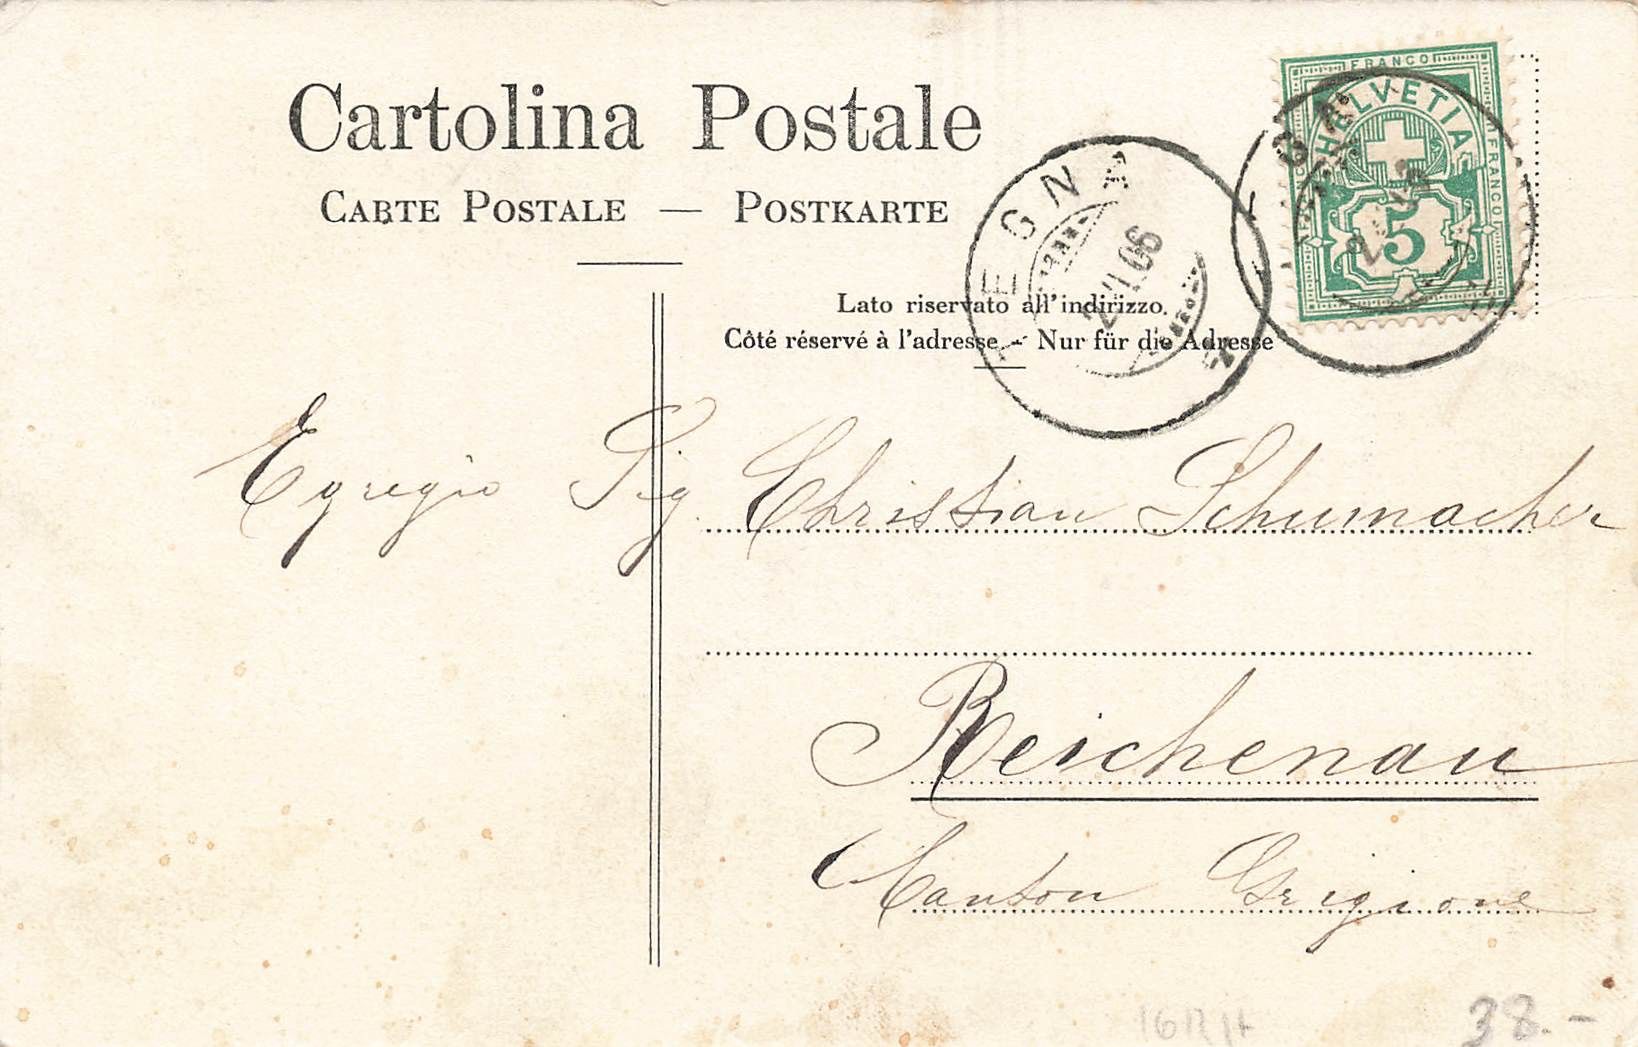 Cartolina Postale
CARTE POSTALE — POSTKARTE
FRANCO
HELVETIA
FRANCO
5
EGNA
06
Lato riservato all'indirizzo.
Côté réservé à l'adresse - Nur für die Adresse
Egregio Sig. Christian Schumacher
Reichenau
Canton Grigione
38.-